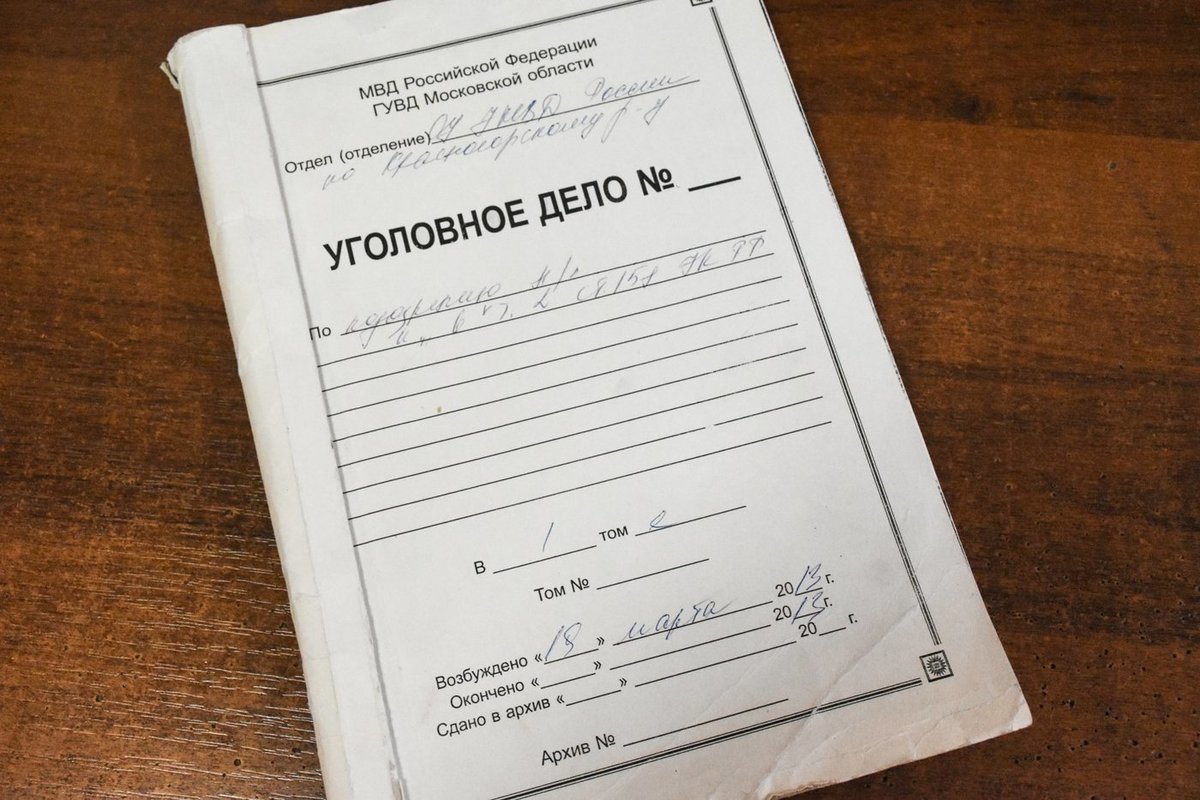 МВД Российской Федерации
ГУВД Московской области
Отдел (отделение) СУ УМВД России
по Красногорскому р-у
УГОЛОВНОЕ ДЕЛО № __
По подозрению н/л
п. "в" ч. 2 ст 158 УК РФ
В 1 том е
Том №
Возбуждено «18» марта 2013 г.
Окончено « » 2013 г.
Сдано в архив « » 20 г.
Архив №